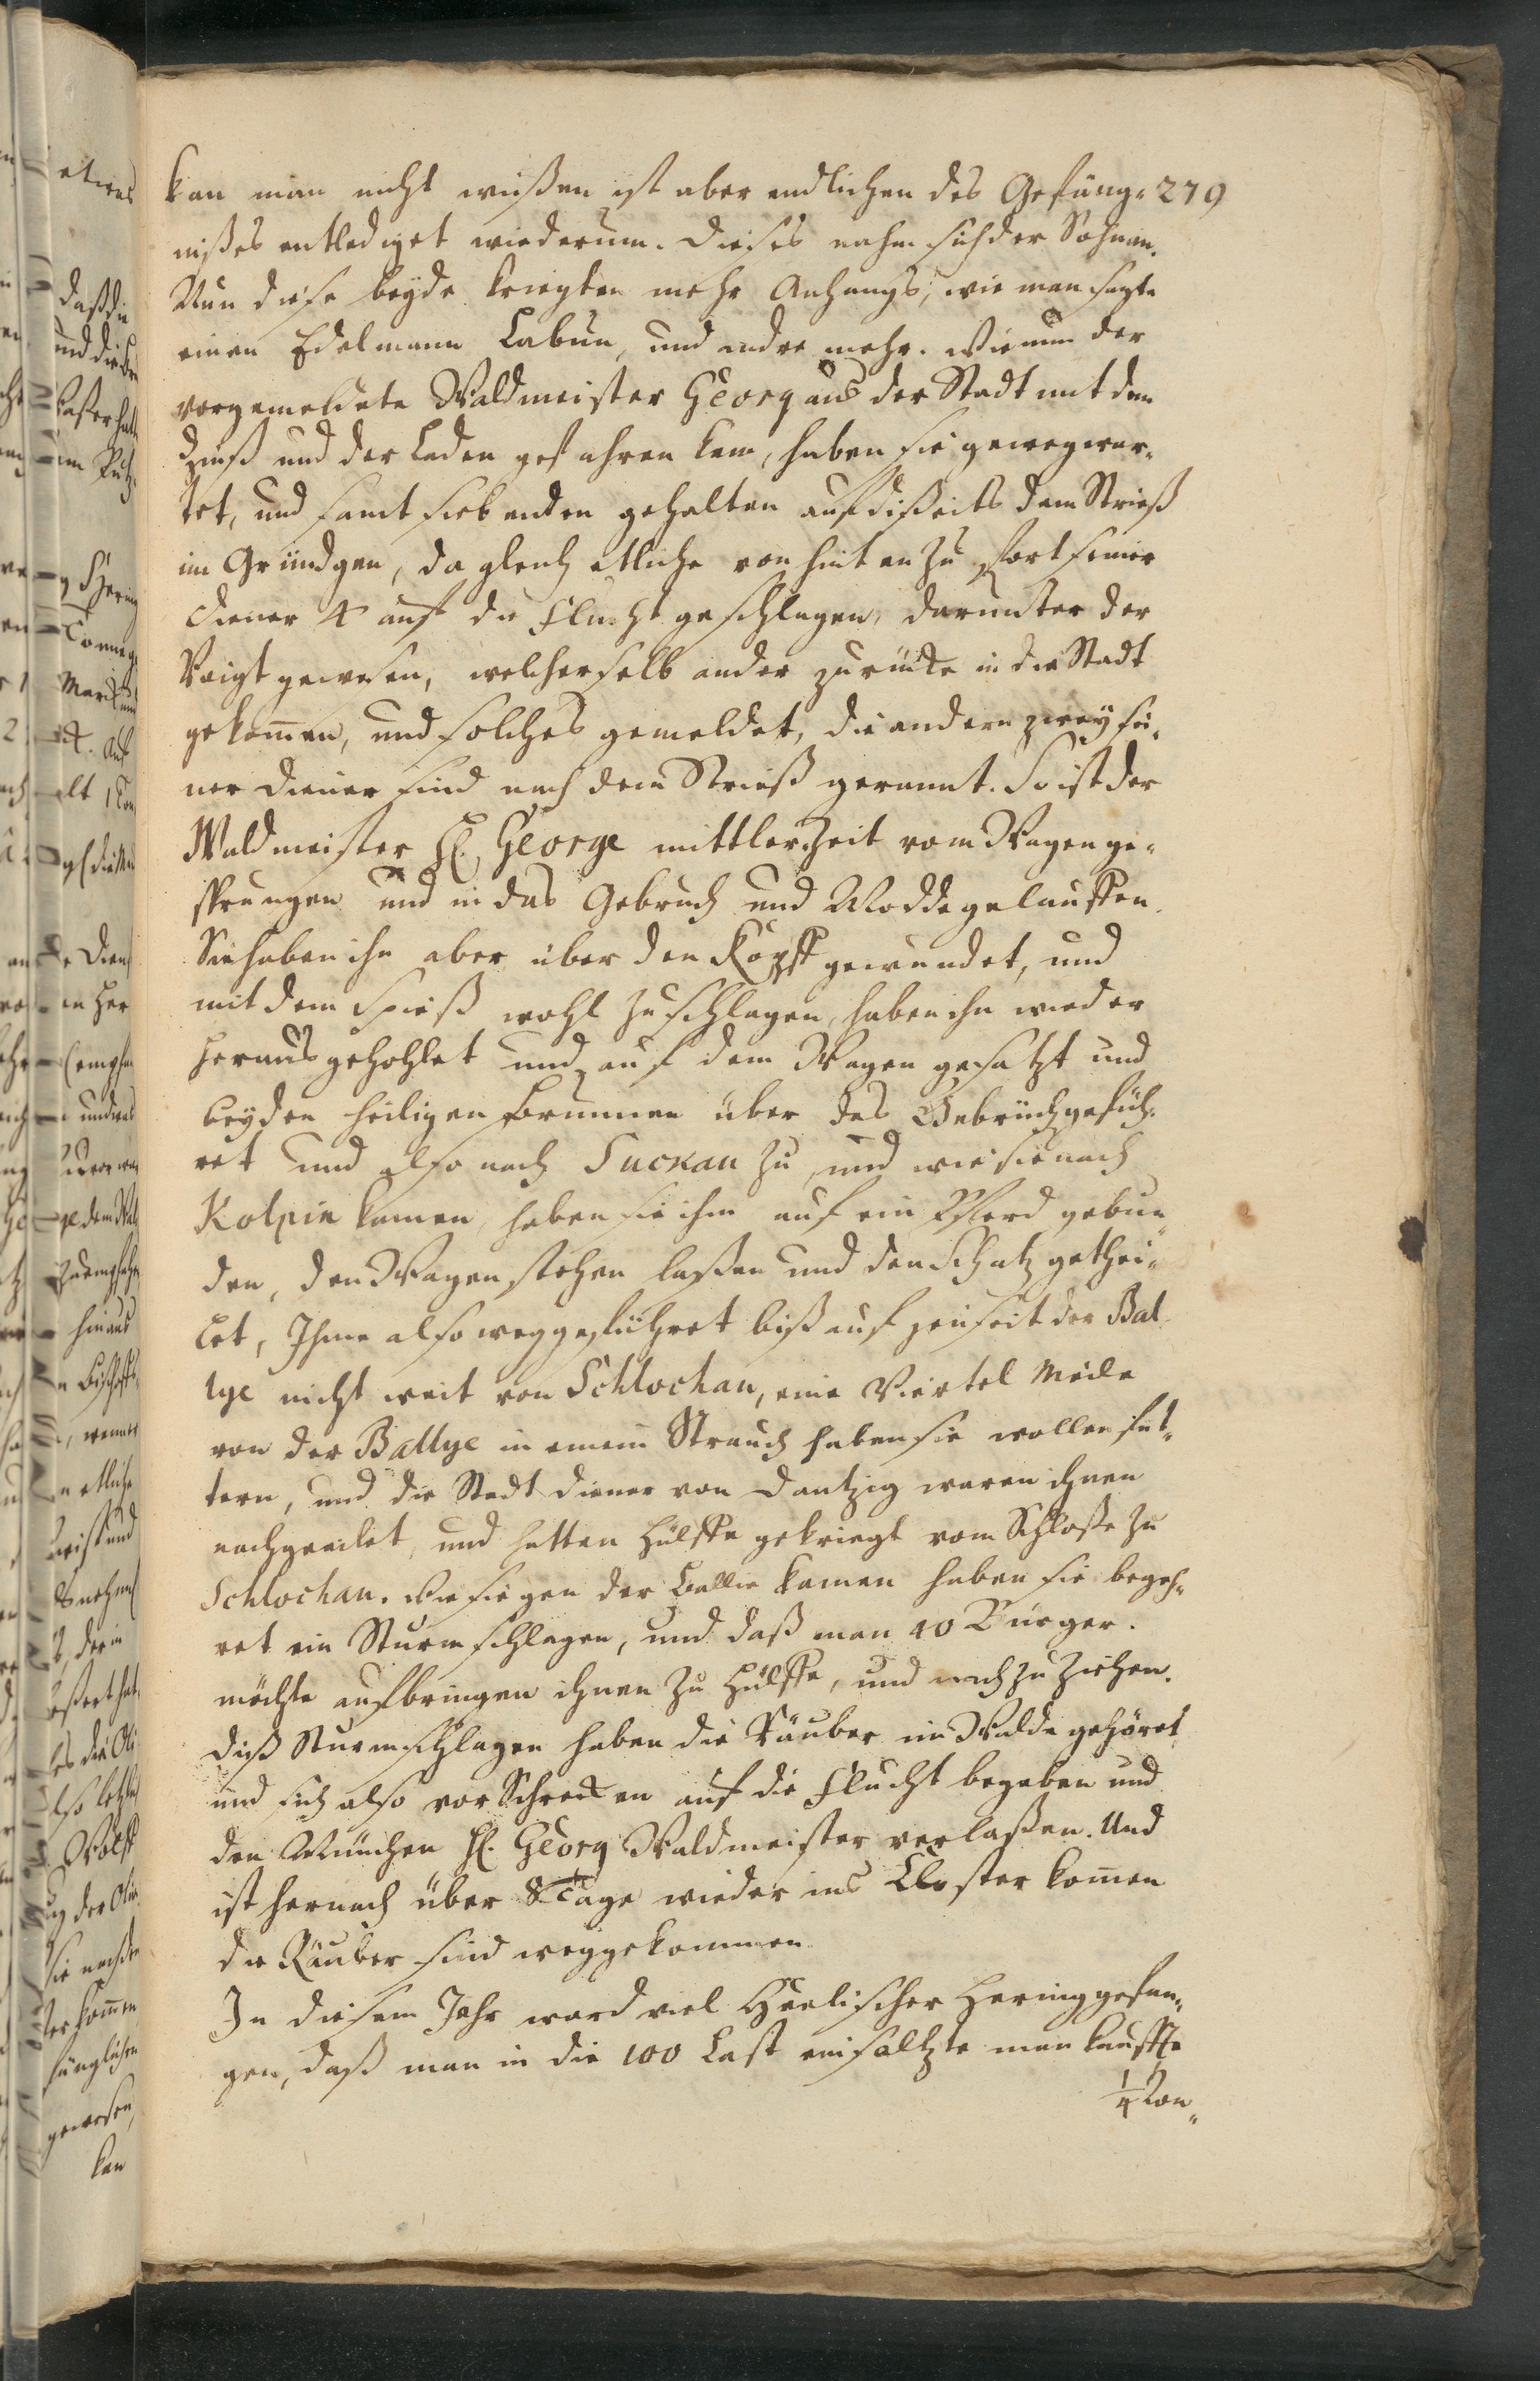 kan man nicht wißen ist aber endlichen des Gefäng= 279
nißes entlediget wiederum. Dieses nahm sich der Sohn an.
Nun diese beyde kriegten mehr Anhangs, wie man sagte
einen Edelmann Labun, und andre mehr. Wie nun der
vorgemeldete Waldmeister Georg aus der Stadt mit dem
Zinß und der Laden gefahren kam, haben sie gewegwar=
tet, und samt siebenden gehalten auf dißeits dem Strieß
im Gründgen, da gleich etliche von hinten zu fort seiner
Diener 4 auf die Flucht geschlagen, darunter der
Voigt gewesen, welcher selb ander zurücke in die Stadt
gekom̄en, und solches gemeldet, die andern zwey sei=
ner Diener sind nach dem Strieß gerannt. So ist der
Waldmeister H. George mittler Zeit vom Wagen ge=
sprungen und in das Gebruch und Modde gelauffen.
Sie haben ihn aber über den Kopff gewundet, und
mit dem Spieß wohl zuschlagen, haben ihn wieder
heraus gehohlet und auf dem Wagen gesatzt und
bey den heiligen Brunnen über das Gebrüch gefüh=
ret und also nach Suckau zu, und wie sie nach
Kolpin kamen, haben sie ihm auf ein Pferd gebun=
den, den Wagen stehen laßen und den Schatz gethei=
let, Ihme also weggeführet biß auf jenseit der Bal=
lye nicht weit von Schlochau, eine Viertel Meile
von der Ballye in einem Strauch haben sie wollen fut=
tern, und die Stadt Diener von Dantzig waren ihnen
nachgeeilet, und hatten Hülffe gekriegt vom Schloße zu
Schlochau. Wie sie gen der Ballie kamen haben sie begeh=
ret ein Sturm schlagen, und daß man 40 Bürger.
möchte aufbringen ihnen zu Hülffe, und nach zu ziehen.
Diß Sturmschlagen haben die Räuber im Walde gehöret
und sich also vor Schrecken auf die Flucht begeben und
den München H. Georg Waldmeister verlaßen. Und
ist hernach über 8 Tage wieder ins Closter kom̄en
die Räuber sind weggekommen
In diesem Jahr ward viel Heelischer Hering gefan=
gen, daß man in die 100 Last einsaltzte man kauffte
1/4 Ton=